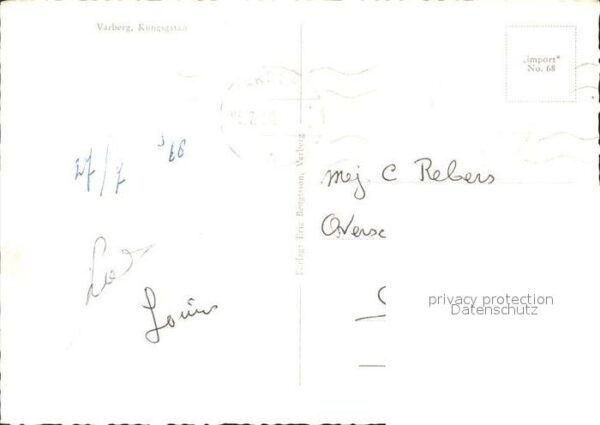 Varberg, Kungsgatan
„import"
No. 68
27/7 '66
mej. C Rebers
Oversc
Louis
Förlag: Eric Bengtsson, Varberg
privacy protection
Datenschutz